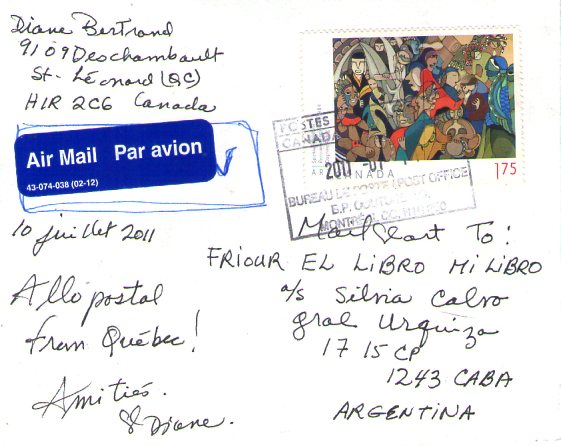 Diane Bertrand
9109 Deschambault
St-Léonard (QC)
H1R 2C6 Canada
Air Mail Par avion
43-074-038 (02-12)
10 juillet 2011
Allo postal
from Québec!
Amitiés.
Diane.
CANADA
1.75
POSTES
CANADA
2011
BUREAU DE POSTE / POST OFFICE
Mail art To:
FRIOUR EL LIBRO MI LIBRO
a/s Silvia Calvo
gral Urquiza
17 15 CP
1243 CABA
ARGENTINA